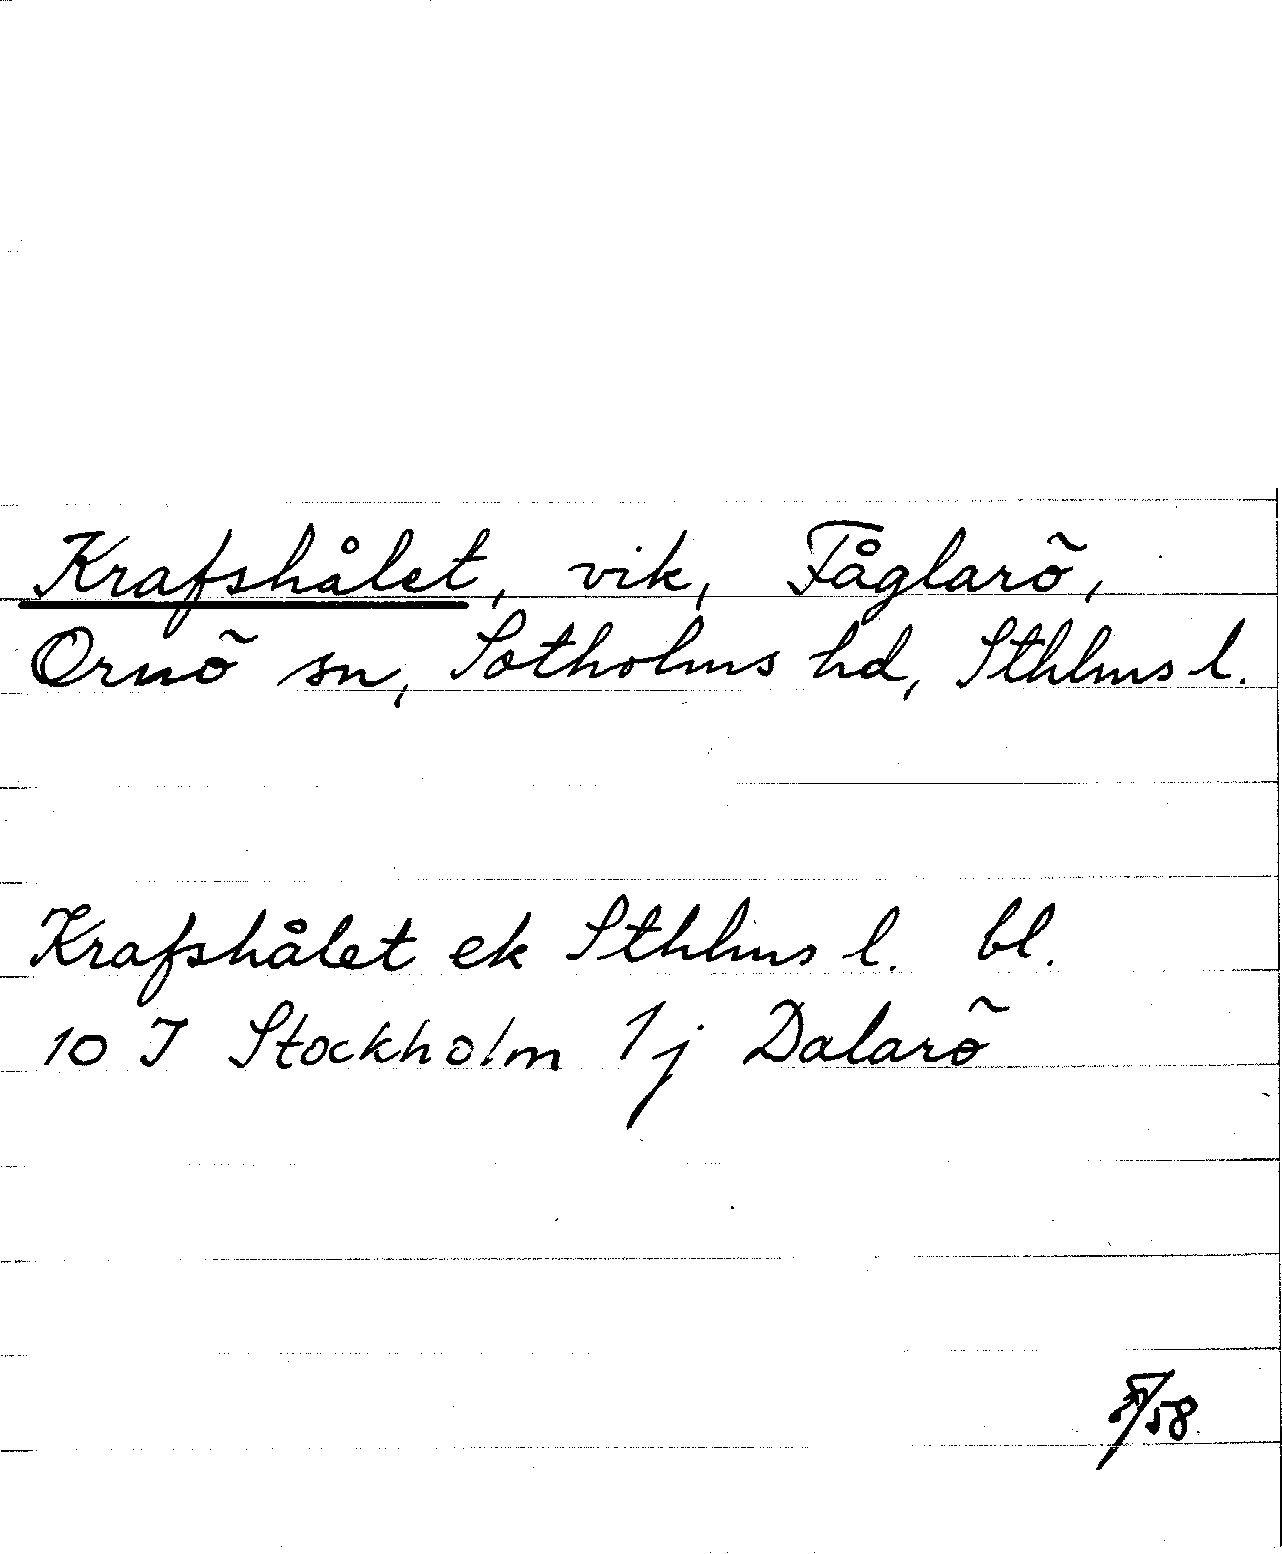 Krafshålet, vik, Fåglarö,
Ornö sn, Sotholms hd, Sthlms l.
Krafshålet ek Sthlms l. bl.
10 I Stockholm 1j Dalarö
/58